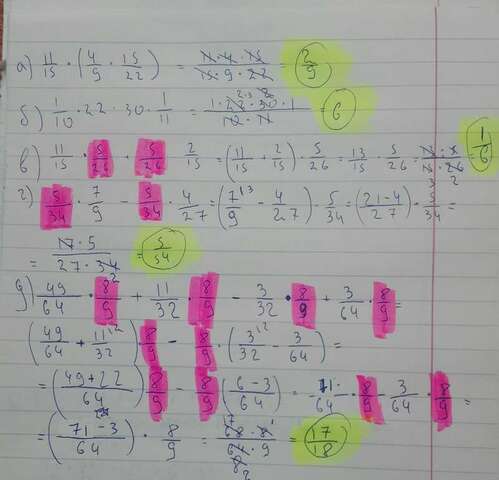 а) 11/15 · (4/9 · 15/22) = 11·4·15/15·9·22 = 2/9
б) 1/10 · 22 · 30 · 1/11 = 1·22·30·1/10·11 = 6
в) 11/15 · 5/26 · 5/26 · 2/15 = (11/15 + 2/15) · 5/26 = 13/15 · 5/26 = 13·5/15·26 = 1/6
г) 5/34 · 7/9 − 5/34 · 4/27 = (7/9 − 4/27) · 5/34 = (21−4/27) · 5/34 =
= 17·5/27·34 = 5/54
д) 49/64 · 8/9 + 11/32 · 8/9 − 3/32 · 8/9 + 3/64 · 8/9 =
(49/64 + 11/32) 8/9 − 8/9 · (3/32 − 3/64) =
= (49+22/64) 8/9 − 8/9 (6−3/64) = 71/64 · 8/9 − 3/64 · 8/9 =
= (71−3/64) · 8/9 = 68·8/64·9 = 17/18